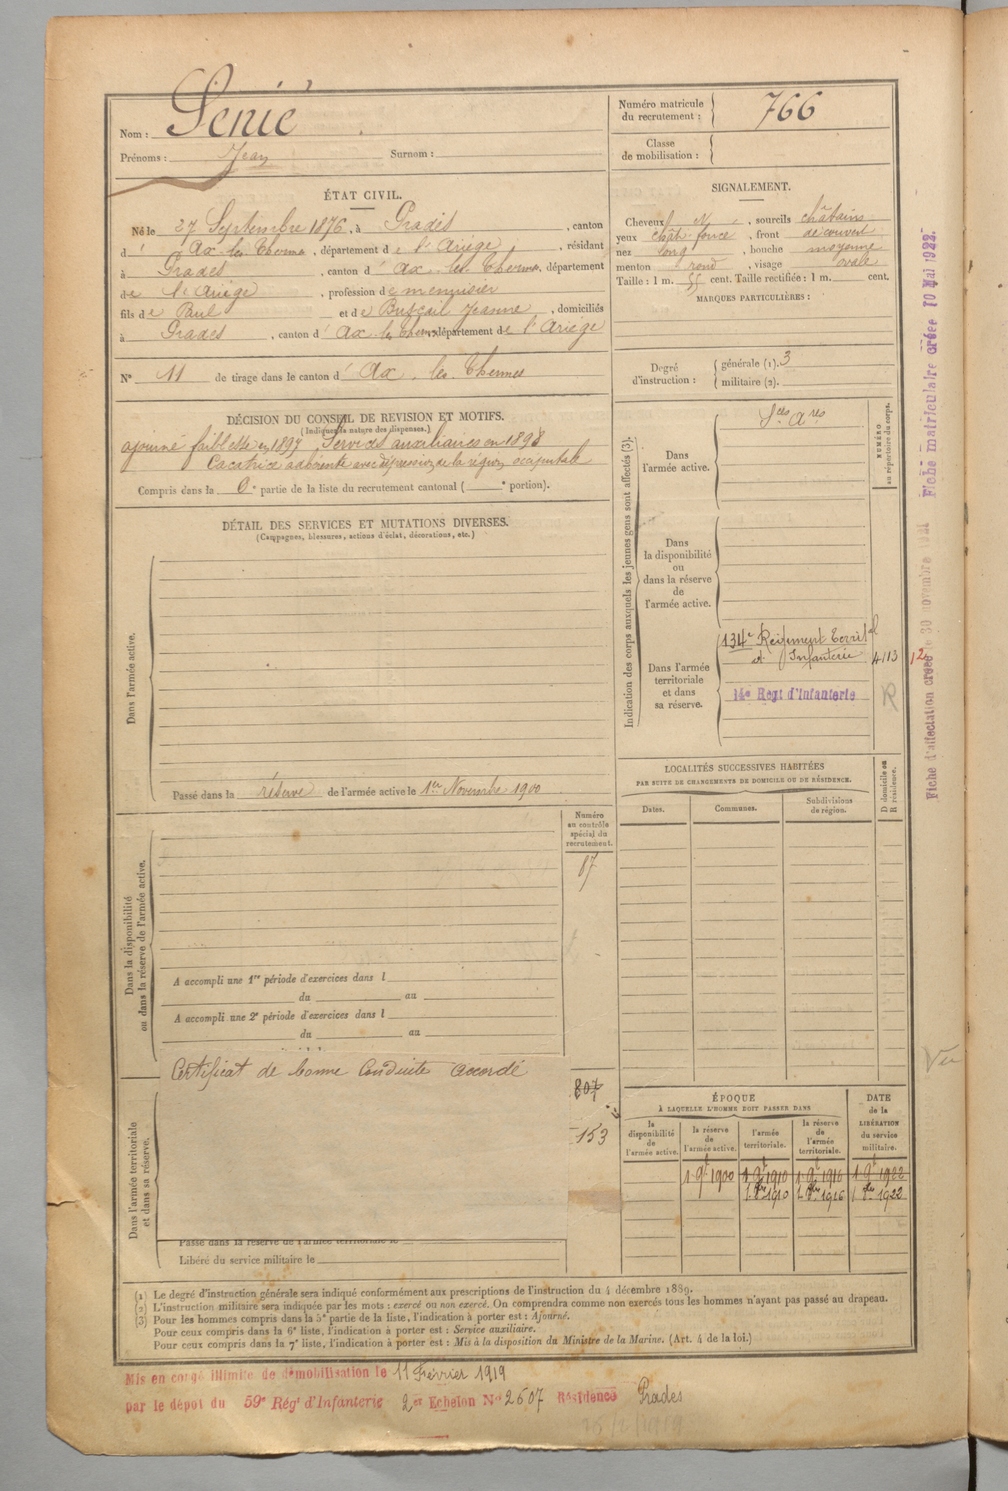 Nom : Senié
Prénoms : Jean Surnom :
Numéro matricule du recrutement : 766
Classe de mobilisation :
ÉTAT CIVIL.
Né le 27 Septembre 1876, à Prades, canton
d' Ax-les-Thermes, département de l'Ariège, résidant
à Prades, canton d'Ax-les-Thermes, département
de l'Ariège, profession de menuisier
fils de Paul et de Jeanne, domiciliés
à Prades, canton d'Ax-les-Thermes département de l'Ariège
N° 11 de tirage dans le canton d'Ax-les-Thermes
SIGNALEMENT.
Cheveux N, sourcils châtains
yeux chât. foncé, front découvert
nez long, bouche moyenne
menton rond, visage ovale
Taille : 1 m. 55 cent. Taille rectifiée : 1 m. cent.
MARQUES PARTICULIÈRES :
Degré d'instruction : générale (1). 3
militaire (2).
DÉCISION DU CONSEIL DE REVISION ET MOTIFS.
(Indiquer la nature des dispenses.)
ajourné faiblesse en 1897 Services auxiliaires en 1898
Cacatrice adhérente avec dépression de la région occipitale
Compris dans la 6e partie de la liste du recrutement cantonal ( e portion).
DÉTAIL DES SERVICES ET MUTATIONS DIVERSES.
(Campagnes, blessures, actions d'éclat, décorations, etc.)
Dans l'armée active.
Passé dans la réserve de l'armée active le 1er Novembre 1900
Indication des corps auxquels les jeunes gens sont affectés (3).
NUMÉRO au répertoire du corps.
Dans l'armée active.
Sces Ares
Dans la disponibilité ou dans la réserve de l'armée active.
Dans l'armée territoriale et dans sa réserve.
134e Régiment Territal
d'Infanterie 4113 12
14e Regt d'Infanterie
R
LOCALITÉS SUCCESSIVES HABITÉES
PAR SUITE DE CHANGEMENTS DE DOMICILE OU DE RÉSIDENCE.
Dates. Communes. Subdivisions de région. D domicile ou R résidence.
Numéro au contrôle spécial du recrutement.
87
Dans la disponibilité ou dans la réserve de l'armée active.
A accompli une 1re période d'exercices dans l
du au
A accompli une 2e période d'exercices dans l
du au
Certificat de bonne Conduite accordé
807
153
Dans l'armée territoriale et dans sa réserve.
Passé dans la réserve de l'armée territoriale le
Libéré du service militaire le
ÉPOQUE
À LAQUELLE L'HOMME DOIT PASSER DANS
la disponibilité de l'armée active.
la réserve de l'armée active.
l'armée territoriale.
la réserve de l'armée territoriale.
DATE de la LIBÉRATION du service militaire.
1 9t 1900 1 9t 1910 1 9t 1916 1 9t 1922
1910 1916 1922
(1) Le degré d'instruction générale sera indiqué conformément aux prescriptions de l'instruction du 4 décembre 1889.
(2) L'instruction militaire sera indiquée par les mots : exercé ou non exercé. On comprendra comme non exercés tous les hommes n'ayant pas passé au drapeau.
(3) Pour les hommes compris dans la 5e partie de la liste, l'indication à porter est : Ajourné.
Pour ceux compris dans la 6e liste, l'indication à porter est : Service auxiliaire.
Pour ceux compris dans la 7e liste, l'indication à porter est : Mis à la disposition du Ministre de la Marine. (Art. 4 de la loi.)
Mis en congé illimité de démobilisation le 11 Février 1919
par le dépôt du 59e Régt d'Infanterie 2e Echelon No 2607 Résidence Prades
Fiche d'affectation créée le 30 novembre 1921
Fiche matriculaire créée 10 Mai 1922.
Vu